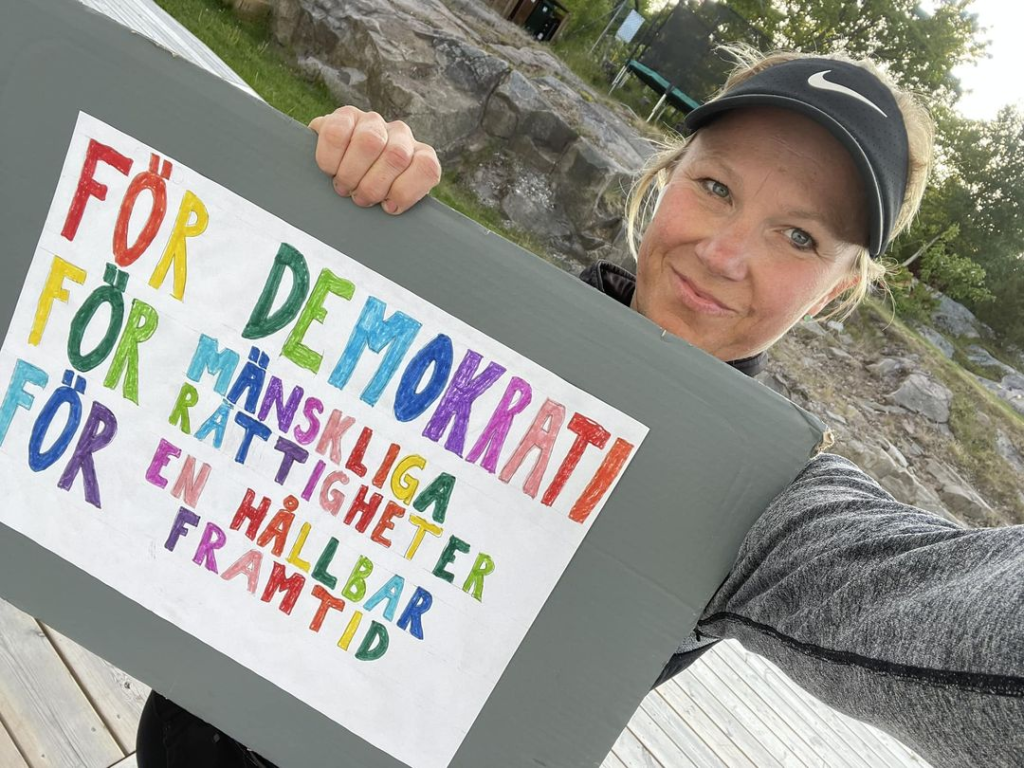 FÖR DEMOKRATI
FÖR MÄNSKLIGA
RÄTTIGHETER
FÖR EN HÅLLBAR
FRAMTID